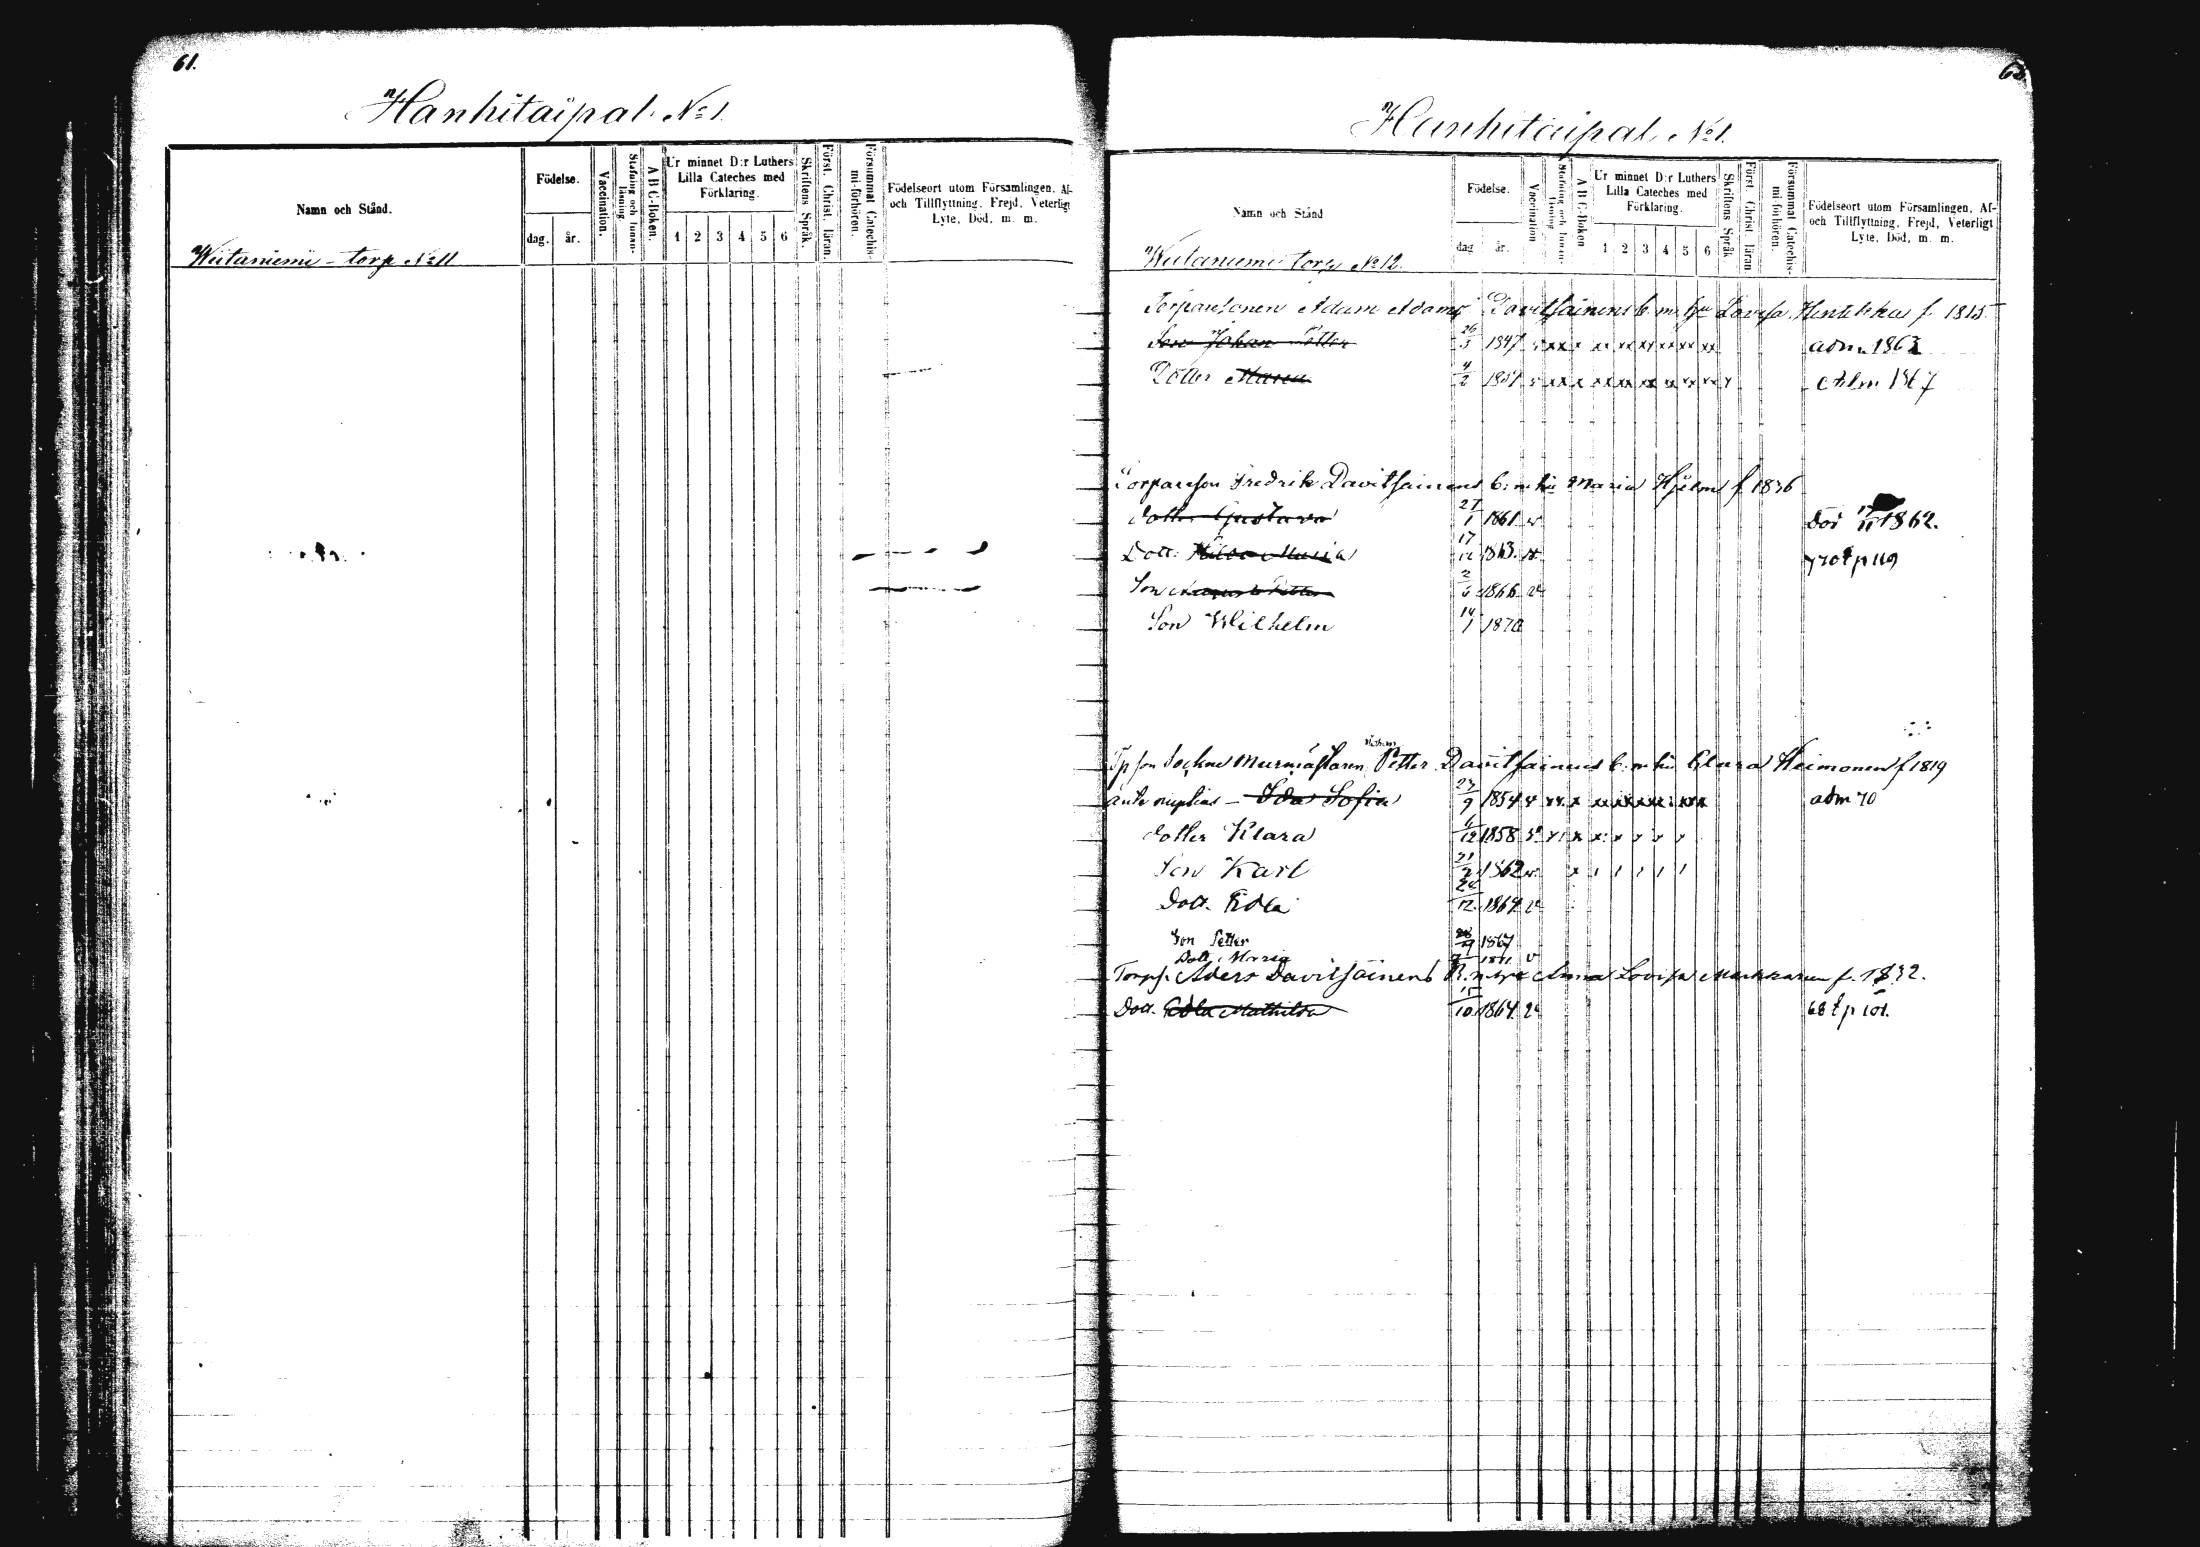 61.
Hanhitaipal No 1.
Namn och Stånd.
Födelse.
dag. år.
Vaccination.
Stafning och Innanläsning.
A B C-Boken.
Ur minnet D:r Luthers Lilla Cateches med Förklaring.
1 2 3 4 5 6
Skriftens Språk.
Först. Christ. läran.
Försummat Catechismi-förhören.
Födelseort utom Församlingen, Af- och Tillflyttning, Frejd, Veterligt Lyte, Död, m. m.
Wiitaniemi - torp No 11
62.
Hanhitaipal No 1.
Namn och Stånd
Födelse.
dag år.
Vaccination
Stafning och Innanläsning
A B C-Boken
Ur minnet D:r Luthers Lilla Cateches med Förklaring.
1 2 3 4 5 6
Skriftens Språk
Först. Christ. läran
Försummat Catechismi-förhören.
Födelseort utom Församlingen, Af- och Tillflyttning, Frejd, Veterligt Lyte, Död, m. m.
Wiitaniemi torp No 12.
Torparsonen Adam Adams Davitsainens b. m. hu Lovisa f. 1815
Son Johan Petter 26/3 1847 adm. 1863
Dotter Maria 4/2 1851 adm 1867
Torpareson Fredrik Davitsainens b. m. hu Maria Hjelm f 1836
dotter Gustava 27/1 1861 v död 1862.
Dott. Maria 17/12 1863. v 70 t p 119
Son Petter 2/6 1866 v
Son Wilhelm 14/1 1870
Tp son Sockne Murmästaren Johan Petter Davitsainens b. m. hu Clara Heimonen f 1819
ante nuptias - Ida Sofia 27/9 1854 v adm 70
dotter Klara 6/12 1858
Son Karl 21/2 1862 v
Dott. Edla 24/12 1864 v
Son Petter 1867
Dott. Maria v
Torps. Anders Davitsainens B. m. hu Anna Lovisa f. 1832.
Dott. Edla Mathilda 15/10 1864 v 68 t p 101.